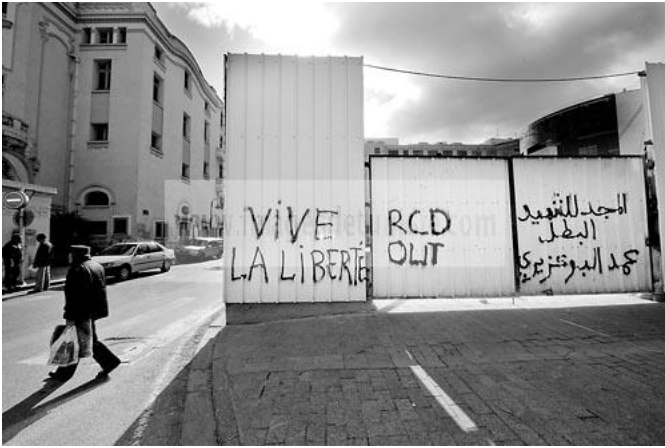 VIVE
LA LIBERTÉ
RCD
OUT
المجد للشهيد
البطل
محمد البوعزيزي